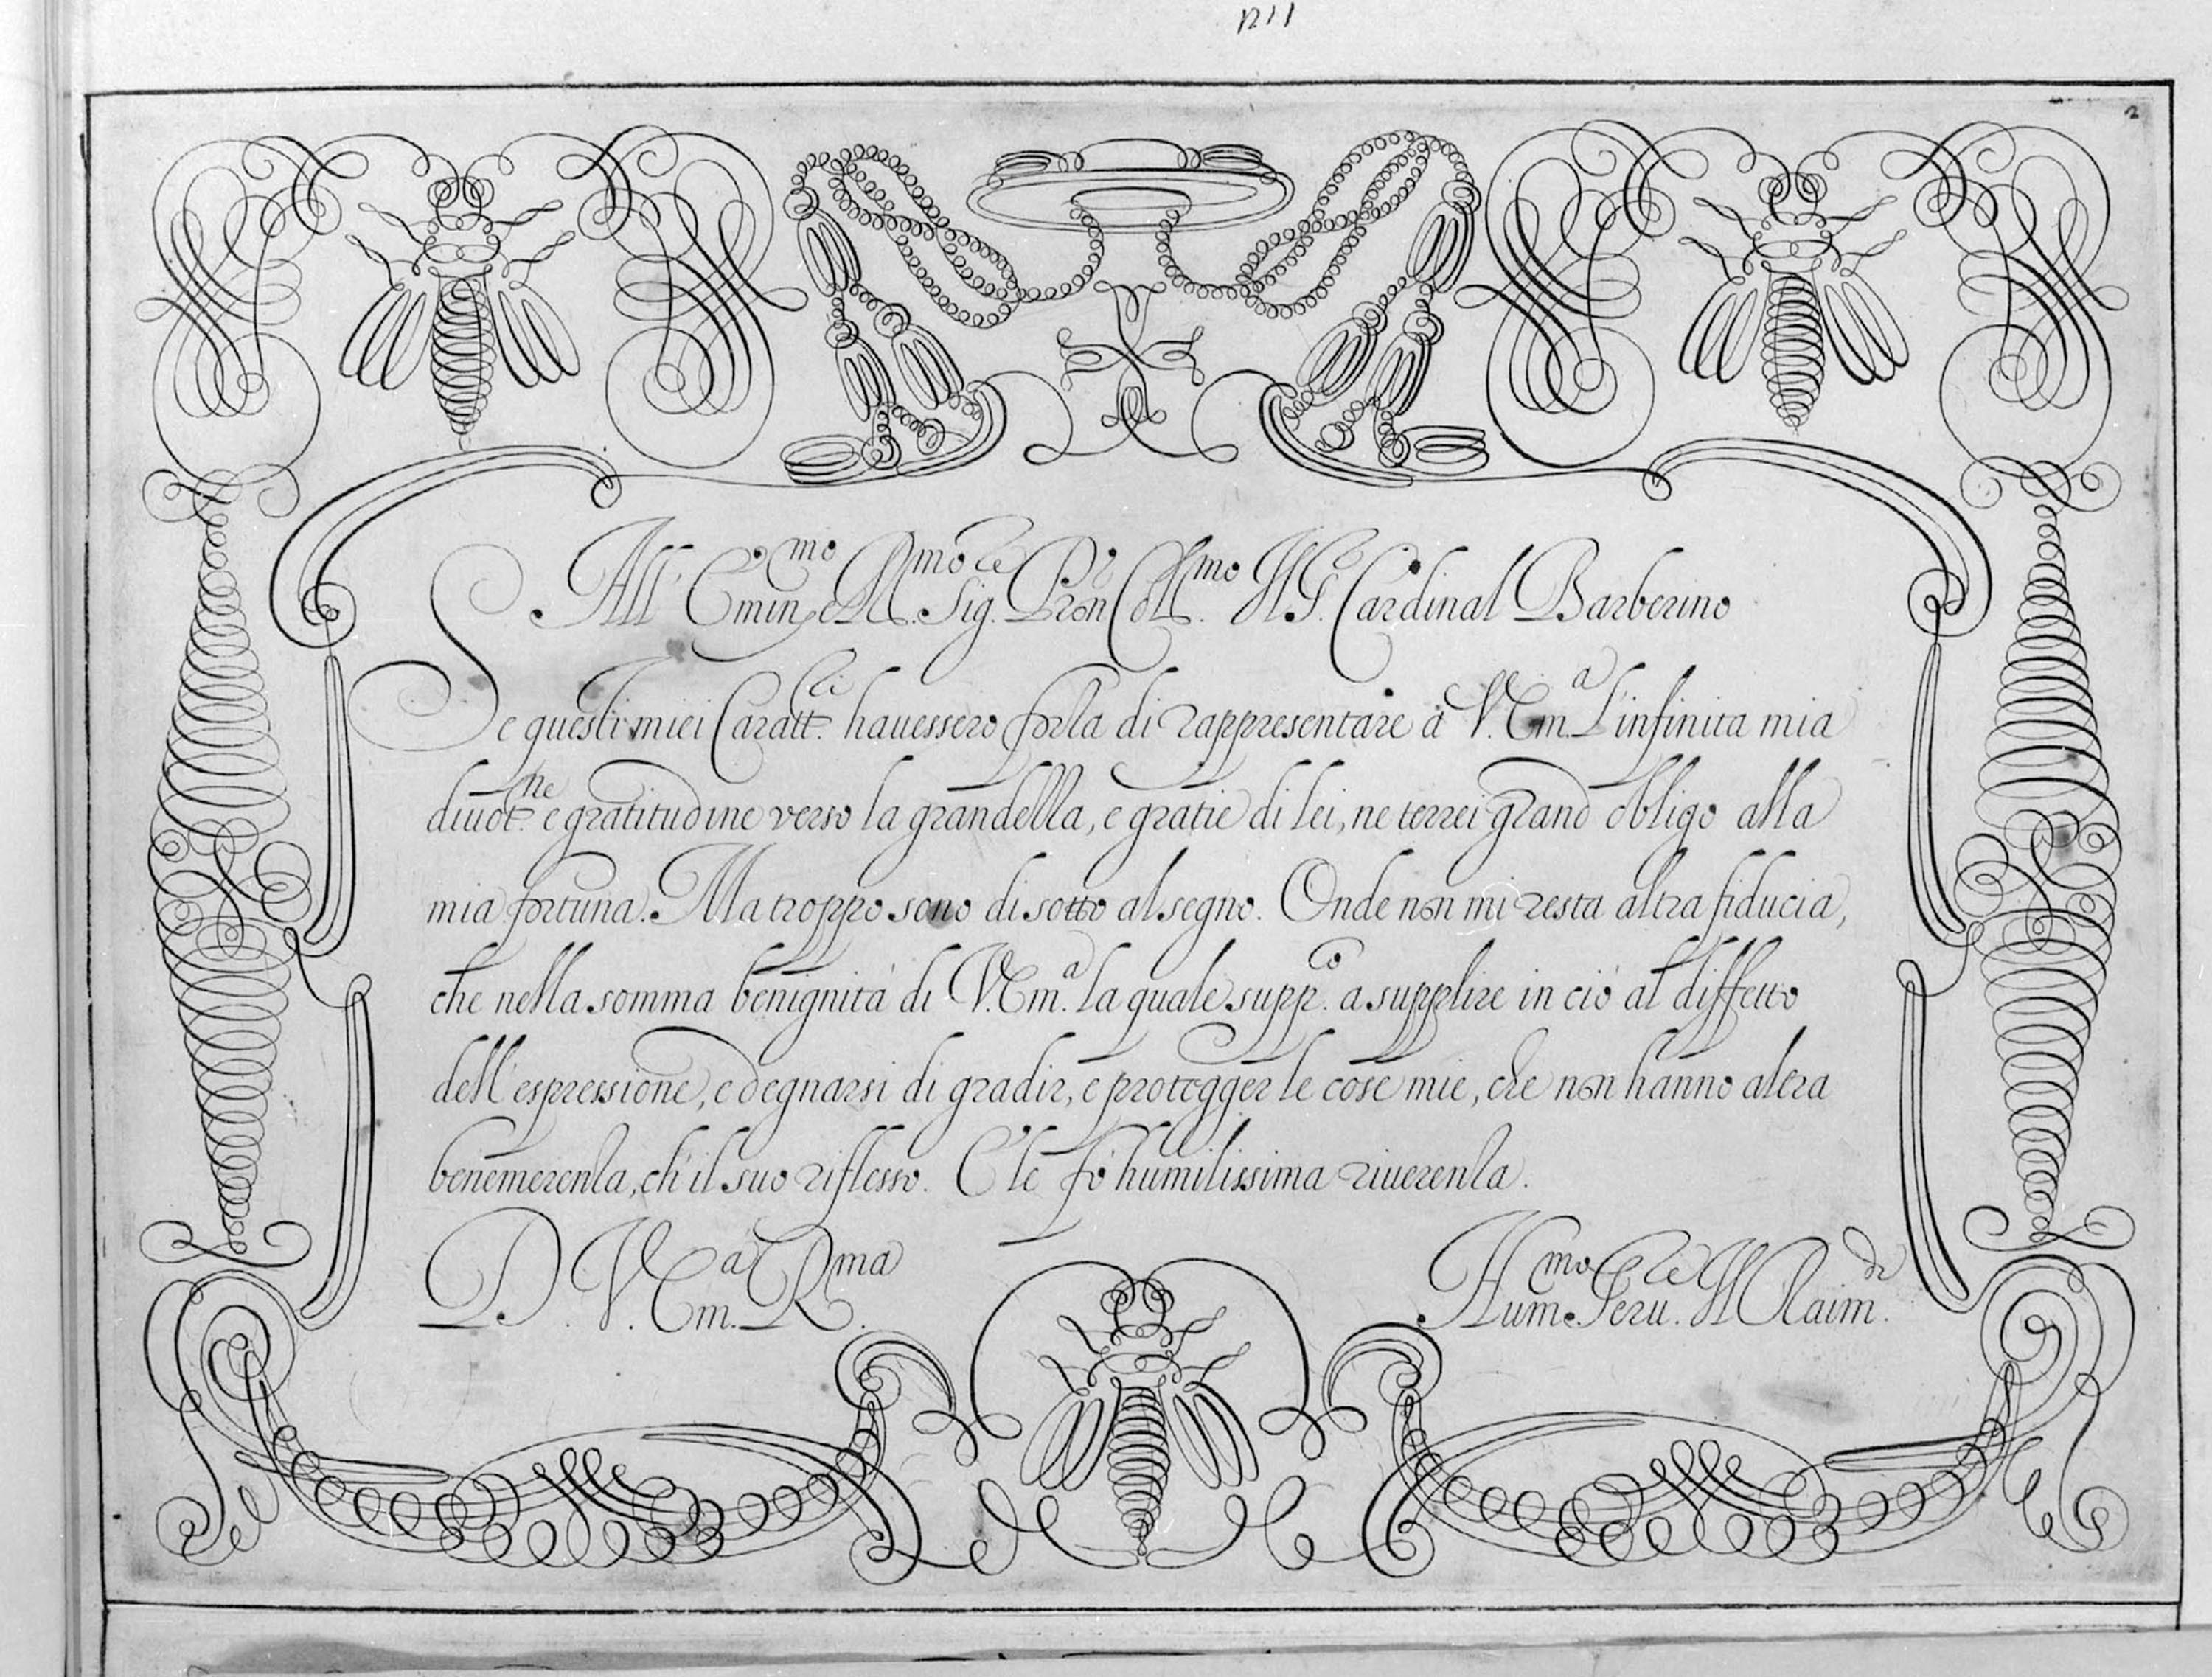 All' Emin.mo e R.mo Sig.re Pron Coll.mo Il S. Cardinal Barberino
Se questi miei Caratt.ri hauessero forza di rappresentare à V. Em.a l'infinita mia
diuot.ne e gratitudine verso la grandezza, e gratie di lei, ne terrei grand obligo alla
mia fortuna. Ma troppo sono di sotto al segno. Onde non mi resta altra fiducia,
che nella somma benignità di V. Em.a la quale supp.co a supplire in ciò al diffetto
dell'espressione, e degnarsi di gradir, e protegger le cose mie, che non hanno altra
benemerenza, ch'il suo riflesso. E le fò humilissima riuerenza.
D. V. Em.a R.ma
Hum.mo Seru.re
2